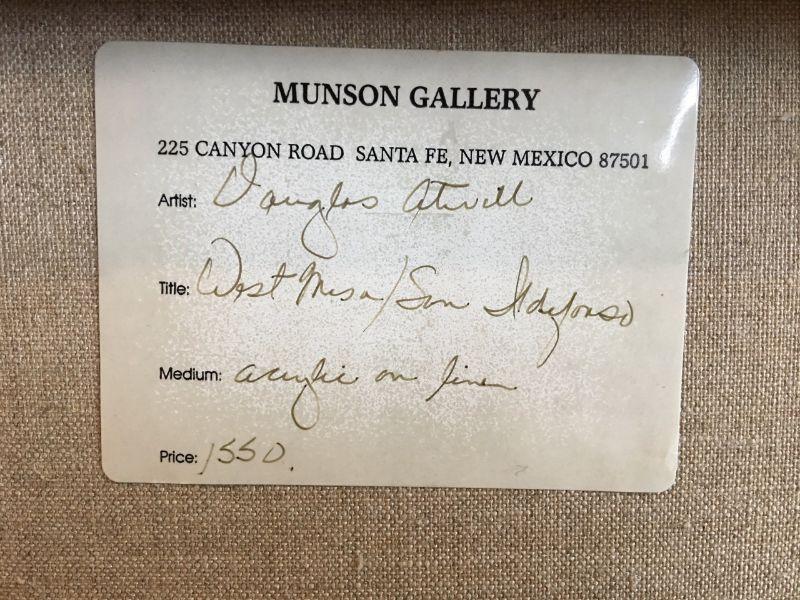 MUNSON GALLERY
225 CANYON ROAD SANTA FE, NEW MEXICO 87501
Artist: Douglas Atwill
Title: West Mesa/San Ildefonso
Medium: acrylic on linen
Price: 1550.